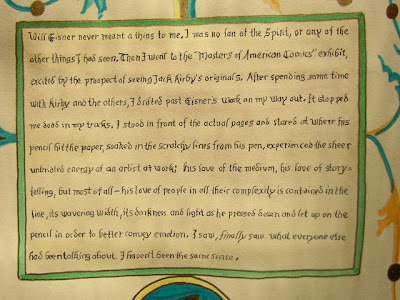 Will Eisner never meant a thing to me. I was no fan of the Spirit, or any of the
other things I had seen. Then I went to the "Masters of American Comics" exhibit,
excited by the prospect of seeing Jack Kirby's originals. After spending some time
with Kirby and the others, I drifted past Eisner's work on my way out. It stopped
me dead in my tracks. I stood in front of the actual pages and stared at where his
pencil hit the paper, soaked in the scratchy lines from his pen, experienced the sheer
unbridled energy of an artist at work; his love of the medium, his love of story-
telling, but most of all - his love of people in all their complexity is contained in the
line, its wavering width, its darkness and light as he pressed down and let up on the
pencil in order to better convey emotion. I saw, finally saw what everyone else
had been talking about. I haven't been the same since.